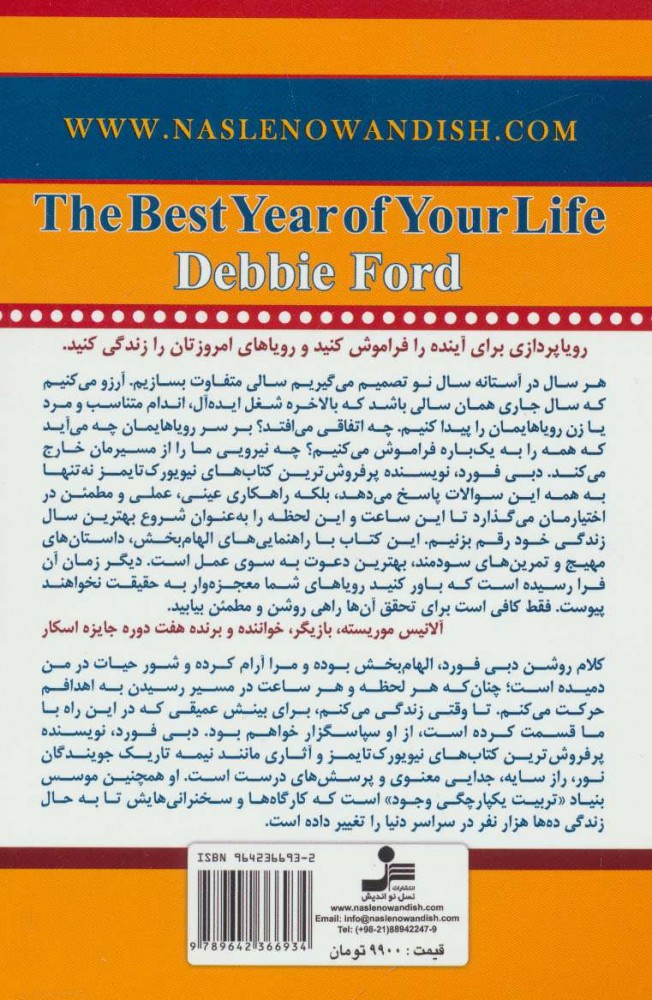 WWW.NASLENOWANDISH.COM
The Best Year of Your Life
Debbie Ford
رویاپردازی برای آینده را فراموش کنید و رویاهای امروزتان را زندگی کنید.
هر سال در آستانه سال نو تصمیم می‌گیریم سالی متفاوت بسازیم. آرزو می‌کنیم
که سال جاری همان سالی باشد که بالاخره شغل ایده‌آل، اندام متناسب و مرد
یا زن رویاهایمان را پیدا کنیم. چه اتفاقی می‌افتد؟ بر سر رویاهایمان چه می‌آید
که همه را به یک‌باره فراموش می‌کنیم؟ چه نیرویی ما را از مسیرمان خارج
می‌کند. دبی فورد، نویسنده پرفروش‌ترین کتاب‌های نیویورک‌تایمز نه‌تنها
به همه این سوالات پاسخ می‌دهد، بلکه راهکاری عینی، عملی و مطمئن در
اختیارمان می‌گذارد تا این ساعت و این لحظه را به‌عنوان شروع بهترین سال
زندگی خود رقم بزنیم. این کتاب با راهنمایی‌های الهام‌بخش، داستان‌های
مهیج و تمرین‌های سودمند، بهترین دعوت به سوی عمل است. دیگر زمان آن
فرا رسیده است که باور کنید رویاهای شما معجزه‌وار به حقیقت نخواهند
پیوست. فقط کافی است برای تحقق آن‌ها راهی روشن و مطمئن بیابید.
آلانیس موریسته، بازیگر، خواننده و برنده هفت دوره جایزه اسکار
کلام روشن دبی فورد، الهام‌بخش بوده و مرا آرام کرده و شور حیات در من
دمیده است؛ چنان‌که هر لحظه و هر ساعت در مسیر رسیدن به اهدافم
حرکت می‌کنم. تا وقتی زندگی می‌کنم، برای بینش عمیقی که در این راه با
ما قسمت کرده است، از او سپاسگزار خواهم بود. دبی فورد، نویسنده
پرفروش‌ترین کتاب‌های نیویورک‌تایمز و آثاری مانند نیمه تاریک جویندگان
نور، راز سایه، جدایی معنوی و پرسش‌های درست است. او همچنین موسس
بنیاد «تربیت یکپارچگی وجود» است که کارگاه‌ها و سخنرانی‌هایش تا به حال
زندگی ده‌ها هزار نفر در سراسر دنیا را تغییر داده است.
ISBN 964236693-2
9 789642 366934
انتشارات
نسل نو اندیش
www.naslenowandish.com
Email: info@naslenowandish.com
Tel: (+98-21)88942247-9
قیمت: ۹۹۰۰ تومان